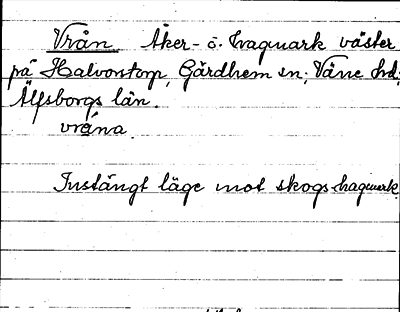 Vrån Åker- o. hagmark väster
på Halvorstorp, Gärdhem sn; Väne hd;
Älfsborgs län.
vråna
Instängt läge mot skogs-hagmark.